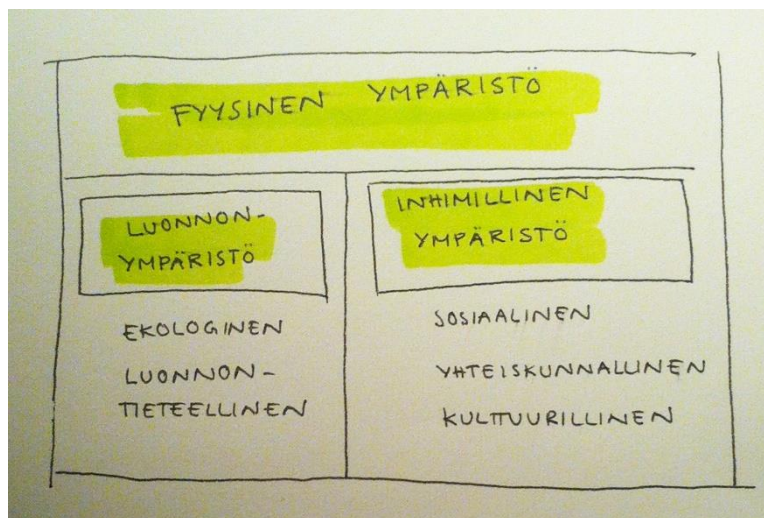 FYYSINEN YMPÄRISTÖ
LUONNON-
YMPÄRISTÖ
EKOLOGINEN
LUONNON-
TIETEELLINEN
INHIMILLINEN
YMPÄRISTÖ
SOSIAALINEN
YHTEISKUNNALLINEN
KULTTUURILLINEN